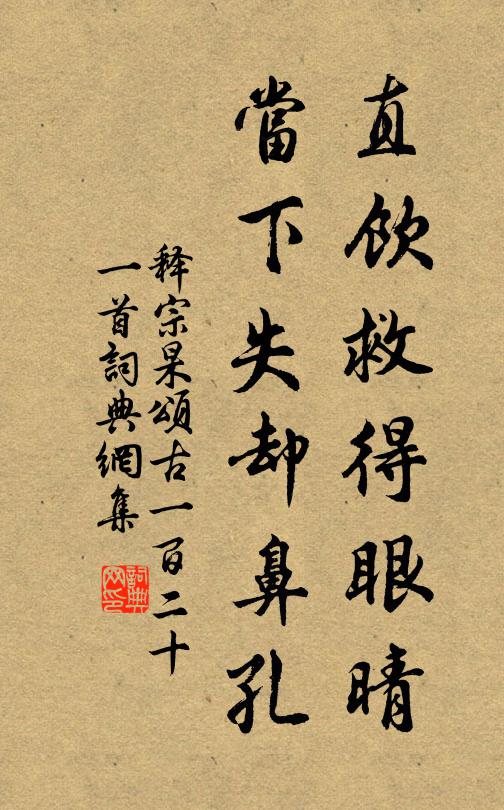 直飲救得眼晴
當下失却鼻孔
释宗杲頌古一百二十
一首詞典網集
詞典
网印